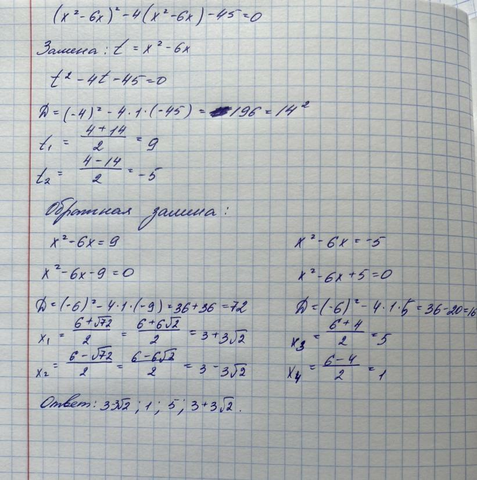 (x²-6x)²-4(x²-6x)-45=0
Замена: t=x²-6x
t²-4t-45=0
D=(-4)²-4·1·(-45)=196=14²
t₁=(4+14)/2=9
t₂=(4-14)/2=-5
Обратная замена:
x²-6x=9
x²-6x-9=0
D=(-6)²-4·1·(-9)=36+36=72
x₁=(6+√72)/2=(6+6√2)/2=3+3√2
x₂=(6-√72)/2=(6-6√2)/2=3-3√2
x²-6x=-5
x²-6x+5=0
D=(-6)²-4·1·5=36-20=16
x₃=(6+4)/2=5
x₄=(6-4)/2=1
Ответ: 3-3√2; 1; 5; 3+3√2.